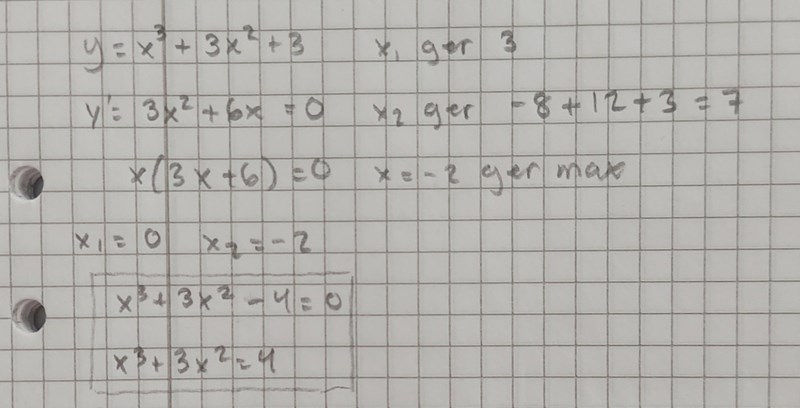 y = x³ + 3x² + 3    x₁ ger 3
y' = 3x² + 6x = 0    x₂ ger -8 + 12 + 3 = 7
x(3x + 6) = 0    x = -2 ger max
x₁ = 0    x₂ = -2
x³ + 3x² - 4 = 0
x³ + 3x² = 4